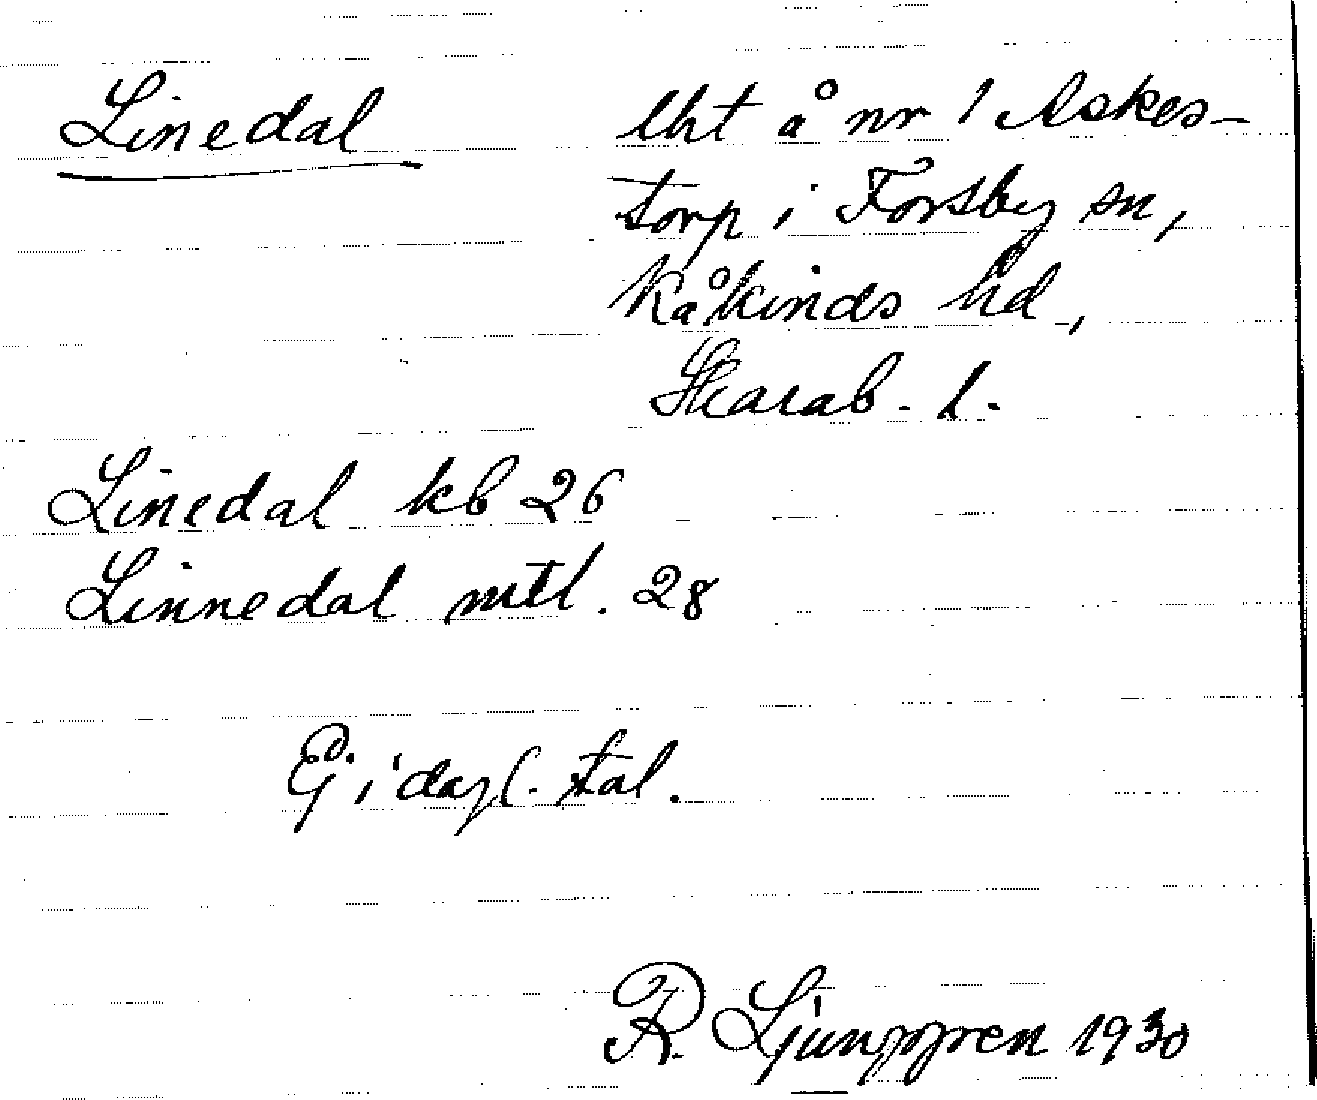 Linedal
lht å nr 1 Askes-
torp i Forsby sn,
Kåkinds hd,
Skarab. l.
Linedal kb 26
Linnedal mtl. 28
Ej i dagl. tal.
R. Ljunggren 1930